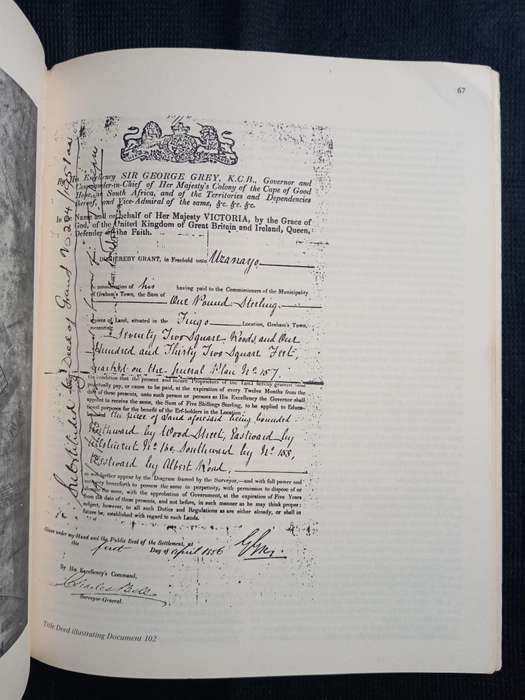 67
His Excellency SIR GEORGE GREY, K.C.B., Governor and
Commander-in-Chief of Her Majesty's Colony of the Cape of Good
Hope, in South Africa, and of the Territories and Dependencies
thereof, and Vice-Admiral of the same, &c. &c. &c.
In the Name and on behalf of Her Majesty VICTORIA, by the Grace of
God, of the United Kingdom of Great Britain and Ireland, Queen,
Defender of the Faith.
DO HEREBY GRANT, in Freehold unto Uzanayo
In consideration of his having paid to the Commissioners of the Municipality
of Graham's Town, the Sum of One Pound Sterling
piece of Land, situated in the Fingo Location, Graham's Town,
containing
Seventy Two Square Roods, and One
Hundred and Thirty Two Square Feet
marked on the general Plan No. 157
the condition that the present and future Proprietors of the Land hereby granted shall
punctually pay, or cause to be paid, at the expiration of every Twelve Months from the
date of these presents, unto such person or persons as His Excellency the Governor shall
appoint to receive the same, the Sum of Five Shillings Sterling, to be applied to Educa-
tional purpose for the benefit of the Erf-holders in the Location
the piece of Land aforesaid being bounded
Northward by Wood Street, Eastward by
Allotment No. 160, Southward by No. 158,
Westward by Albert Road,
together appear by the Diagram framed by the Surveyor,—and with full power and
authority henceforth to possess the same in perpetuity, with permission to dispose of or
the same, with the approbation of Government, at the expiration of Five Years
from the date of these presents, and not before, in such manner as he may think proper:
subject, however, to all such Duties and Regulations as are either already, or shall in
future be, established with regard to such Lands.
Given under my Hand and the Public Seal of the Settlement, at
this first Day of April 1856
G Grey
By His Excellency's Command,
Charles Bell
Surveyor-General.
Substituted by Deed of Grant No
Title Deed illustrating Document 102